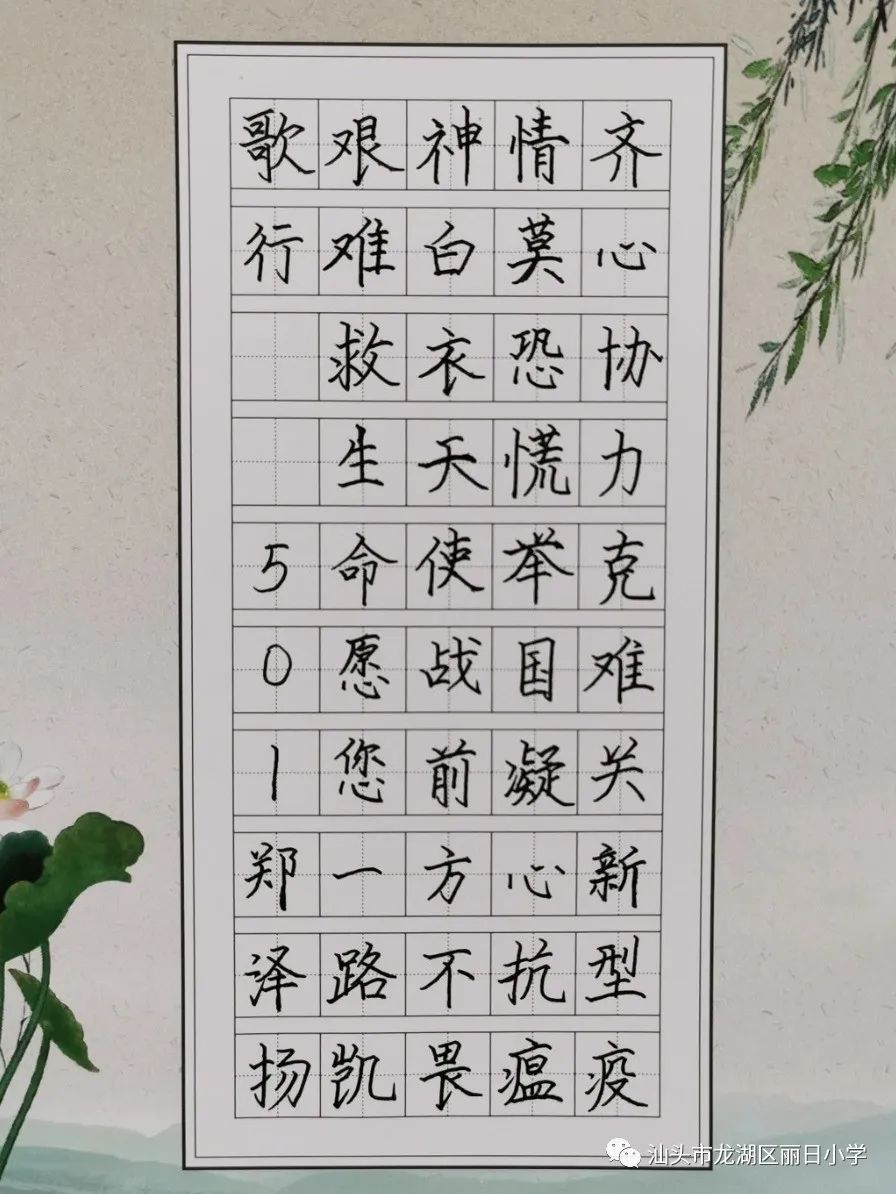 齐心协力克难关新型疫
情莫恐慌举国凝心抗瘟
神白衣天使战前方不畏
艰难救生命愿您一路凯
歌行 501郑泽扬
汕头市龙湖区丽日小学